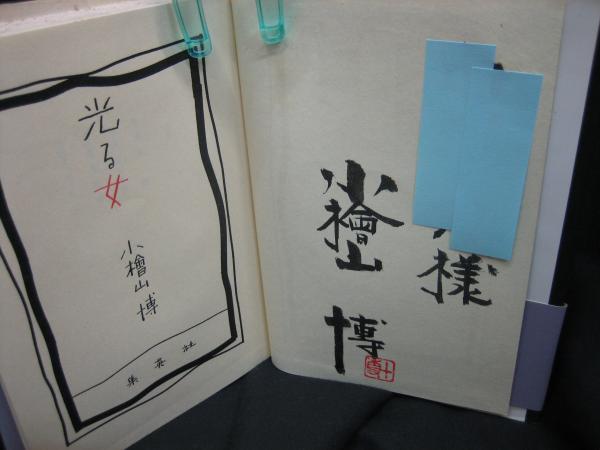 光る女
小檜山博
集英社
様
小檜山博